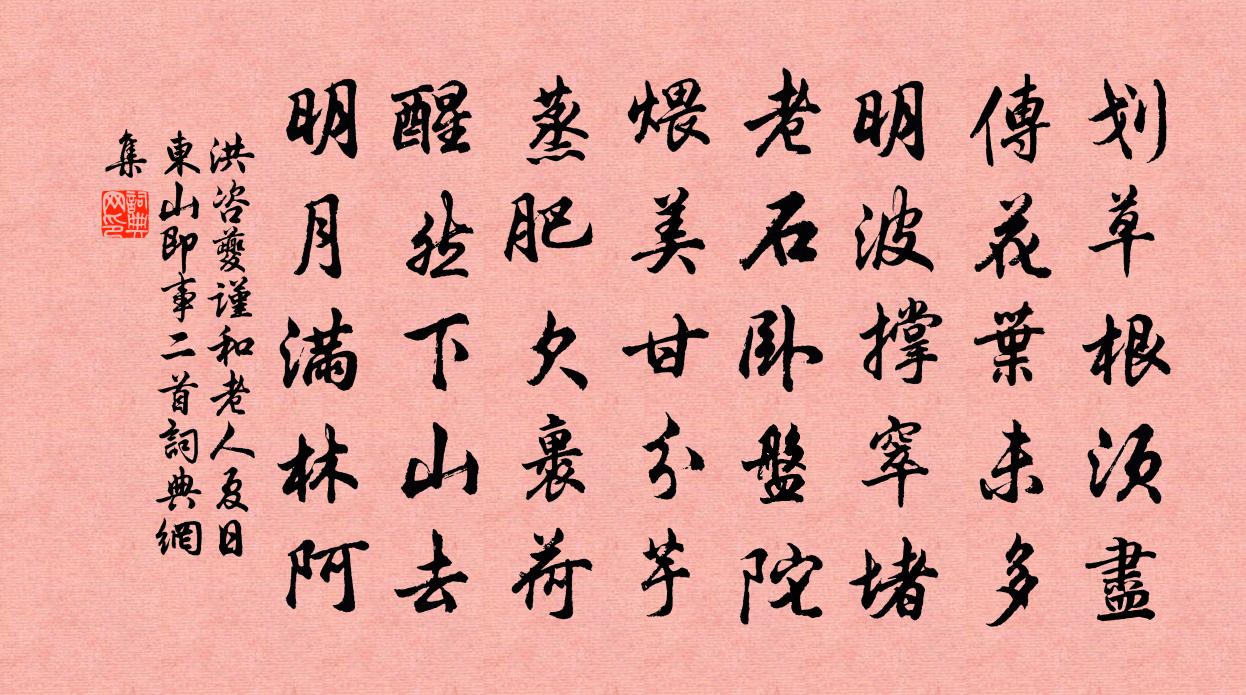 划草根須盡
傳花葉未多
明波撑窣堵
老石卧盤陀
煨美甘分芋
蒸肥欠裹荷
醒然下山去
明月滿林阿
洪咨夔謹和老人夏日
東山即事二首詞典網
集
詞典
网印